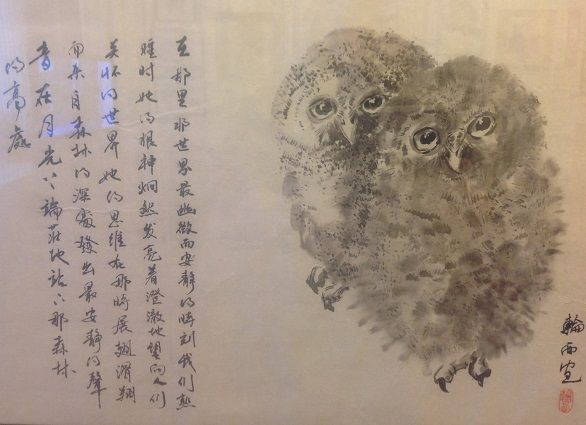 在那里那世界最幽微而安静的時刻我们熟
睡时她的眼神炯然发亮着澄澈地望向人们
关怀的世界她的思维在那時展翅滑翔
而来自森林的深處發出最安静的聲
音在月光下端莊地站 那森林
的高處